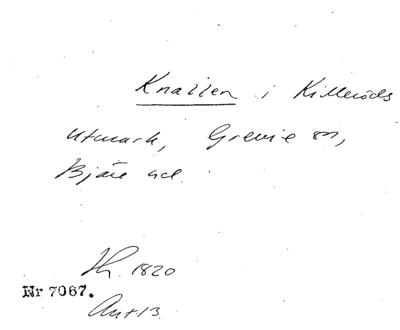 Knallen i Killeröds
utmark, Grevie sn,
Bjäre hd.
Th. 1820
Nr 7067.
Ant 13.